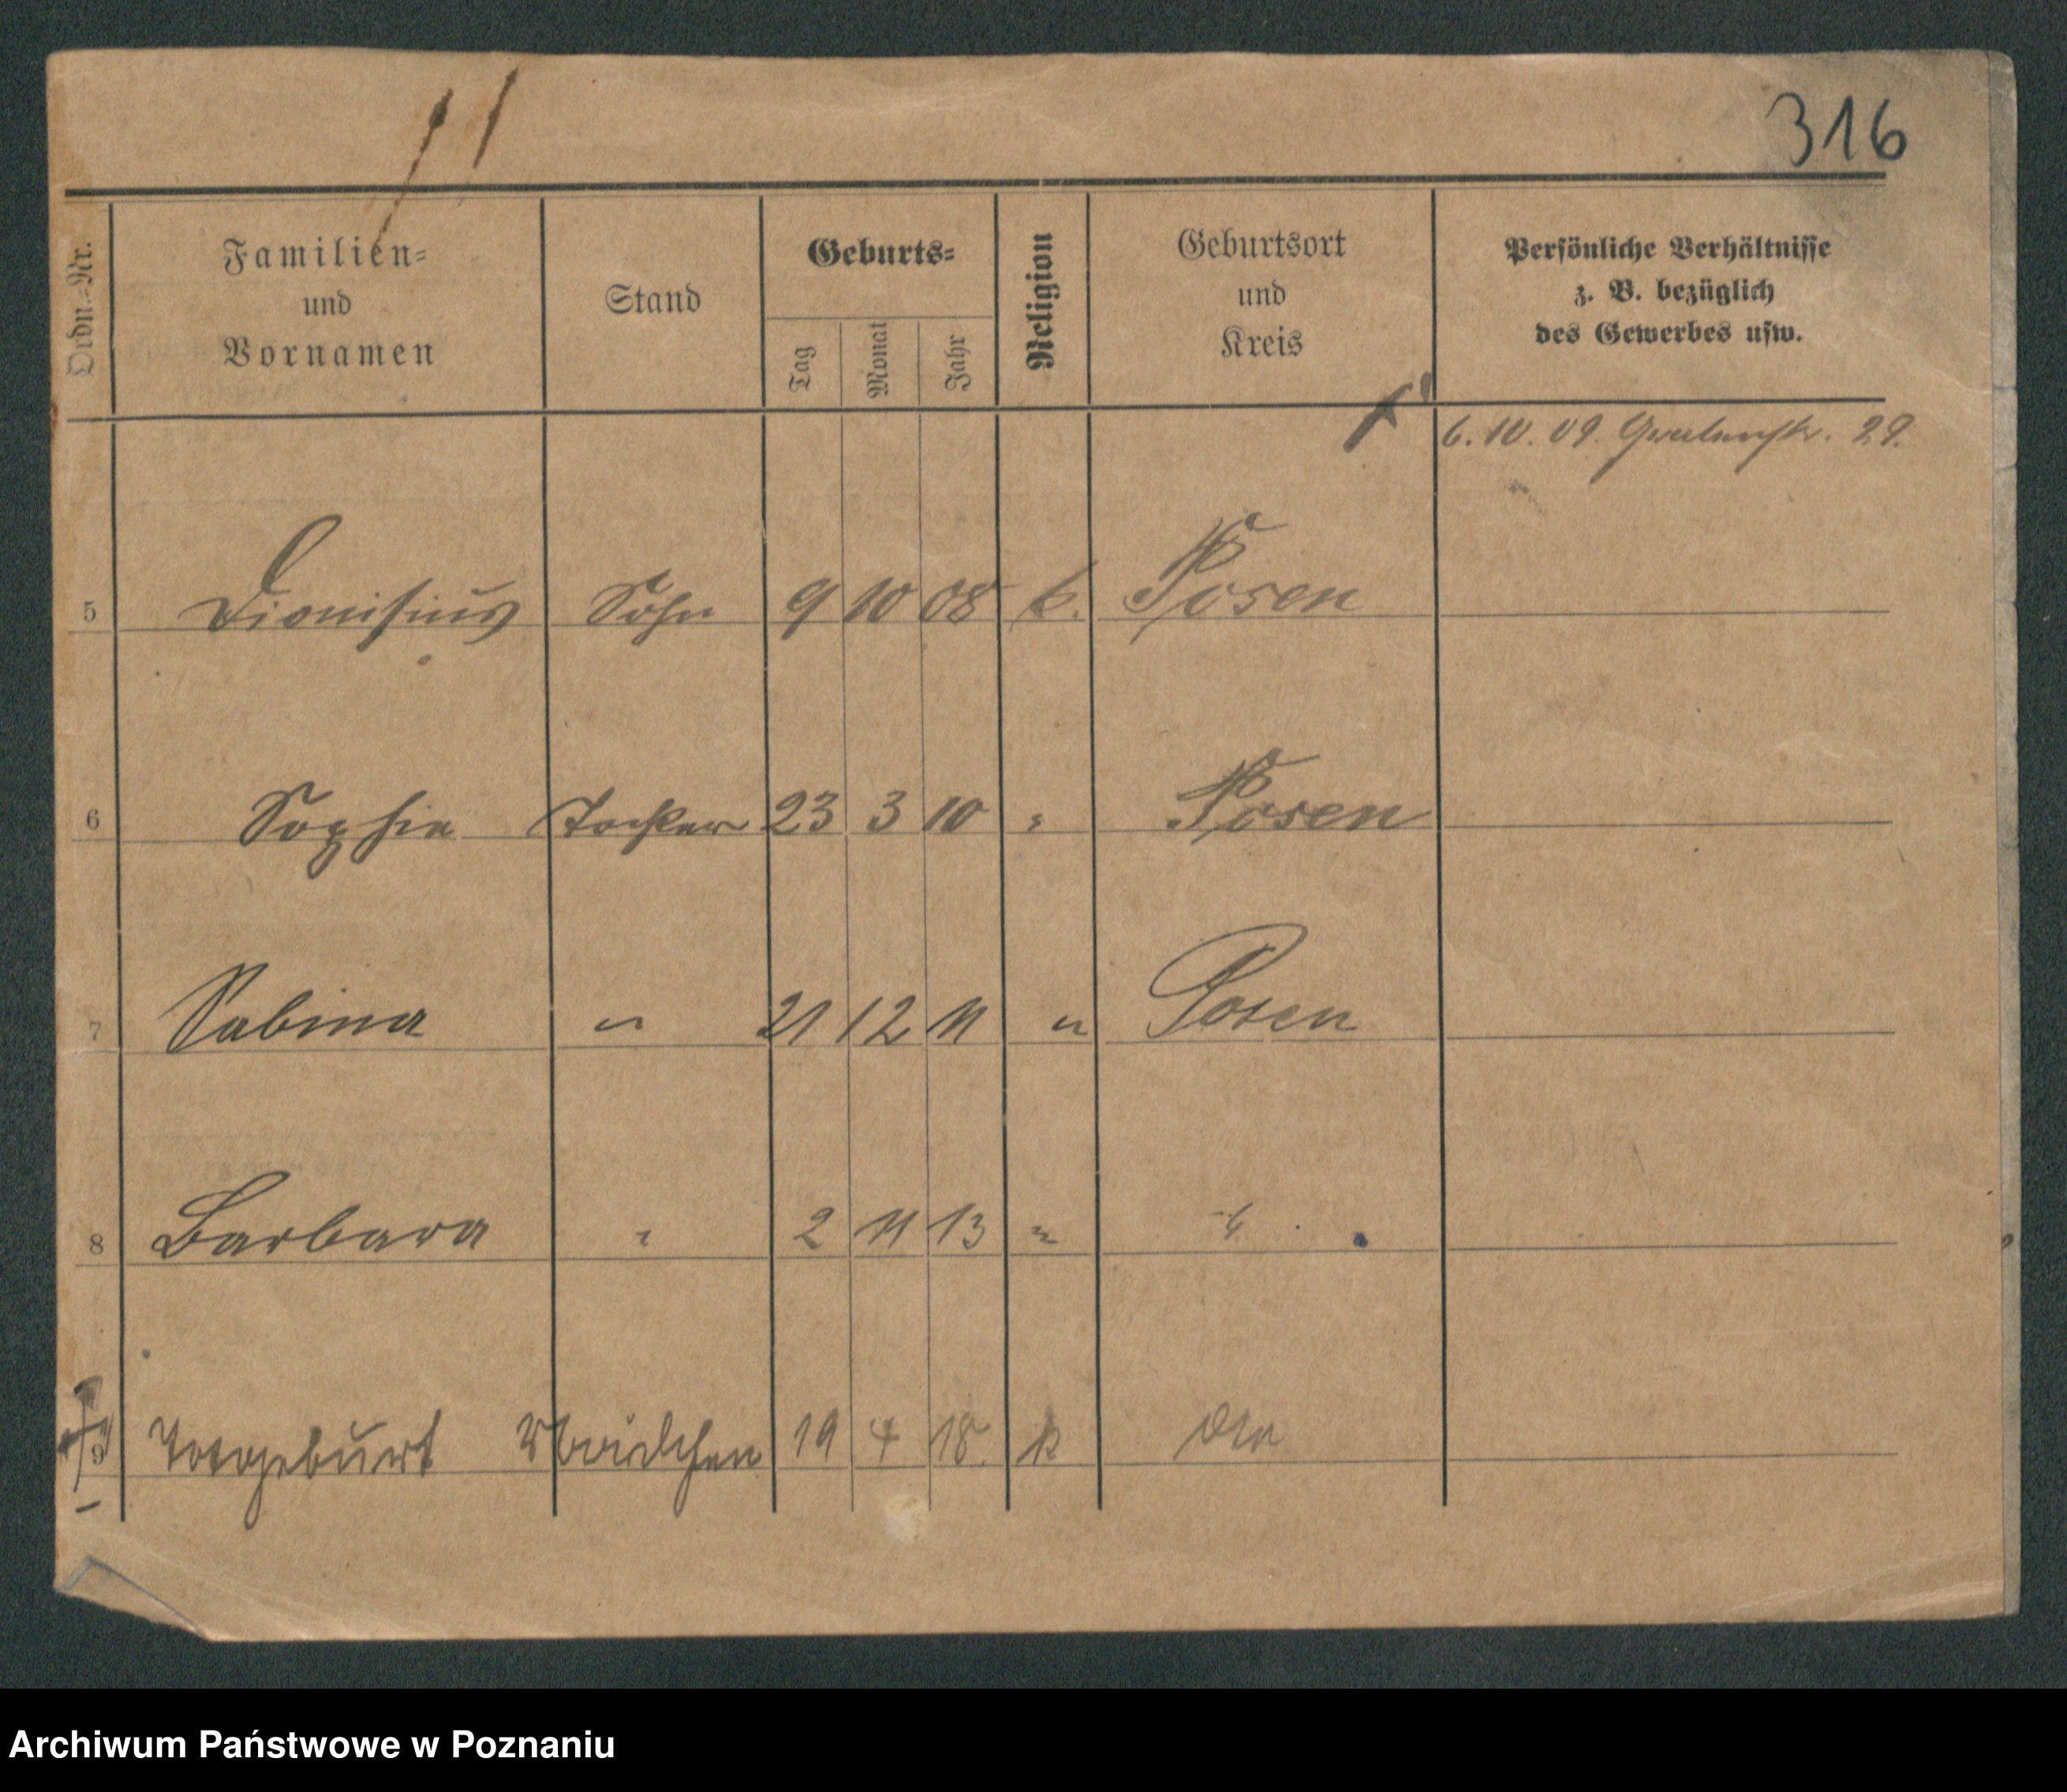 316
Ordn.-Nr.
Familien-
und
Vornamen
Stand
Geburts-
Tag
Monat
Jahr
Religion
Geburtsort
und
Kreis
Persönliche Verhältnisse
z. B. bezüglich
des Gewerbes usw.
6. 10. 09. 29.
5 Dionisius Sohn 9 10 08 k. Posen
6 Sophie Tochter 23 3 10 " Posen
7 Sabina " 21 12 11 " Posen
8 Barbara " 2 11 13 " "
9 Totgeburt Mädchen 19 4 18. k
Archiwum Państwowe w Poznaniu